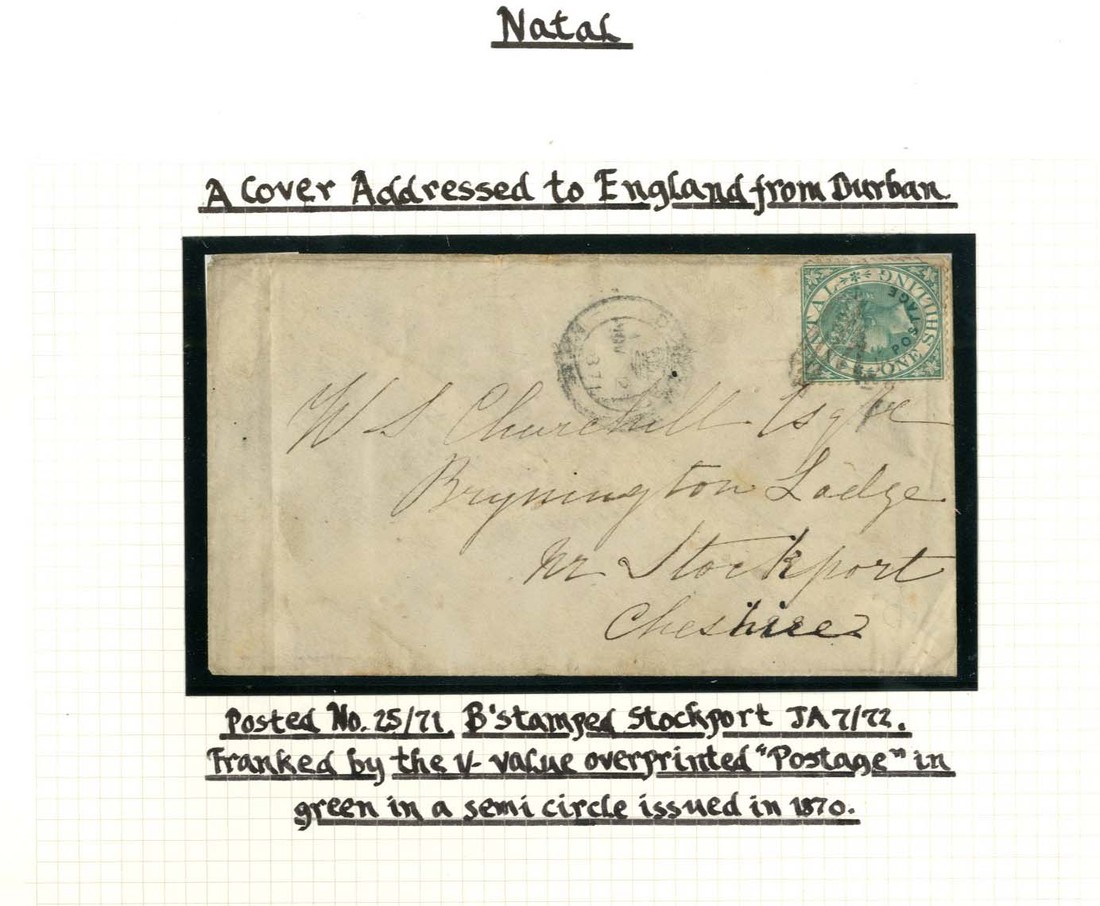 Natal
A Cover Addressed to England from Durban
NATAL
ONE SHILLING
POSTAGE
NOV
W S Churchill Esqre
Brynington Lodge
nr Stockport
Cheshire
Posted No. 25/71. B'stamped Stockport JA 7/72.
Franked by the 1/- value overprinted "Postage" in
green in a semi circle issued in 1870.